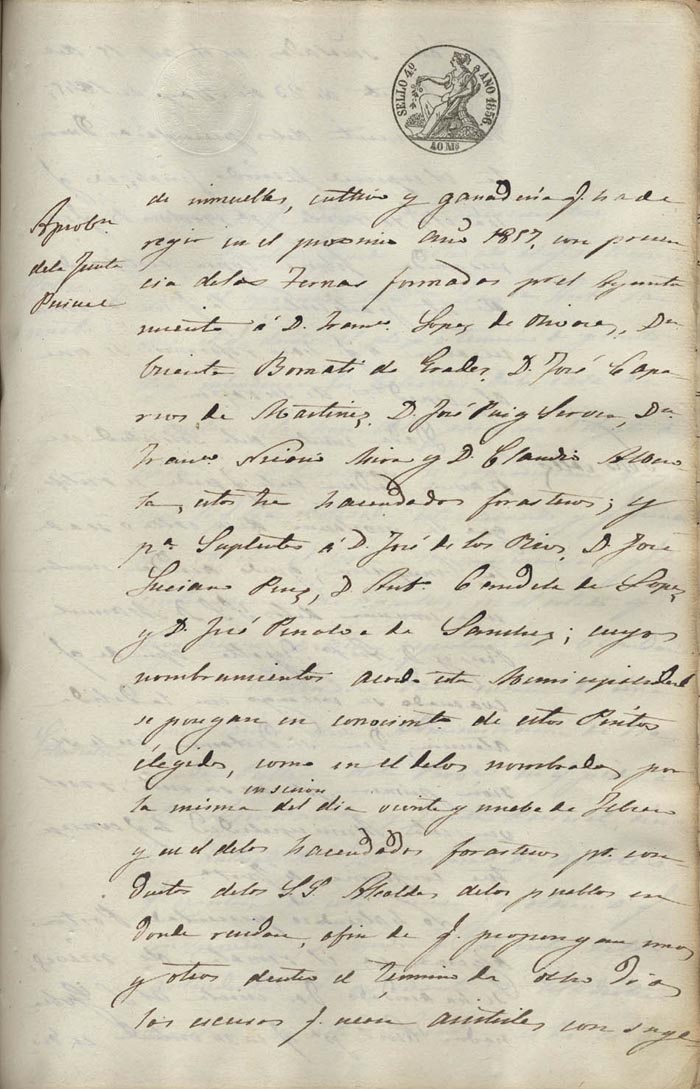 SELLO 4º AÑO 1856.
40 Ms
Aprobn
dela Junta
de inmuebles, cultivo y ganaderia q. ha de
regir en el proximo año 1857, con presen
cia delas Ternas formadas pr el Ayunta
miento á D. Franco Lopez de Dn
Vicente de D. José Capa
rros de Martinez, D. José Puig Dn
Franco Mira y D. Claudio
la, estos tres hacendados forasteros; y
pa Suplentes á D. José de los Rios, D. José
Luciano D. Antº de Lopez
y D. José Penalva de Sanchez; cuyos
nombramientos acordó esta Municipalidad
se pongan en conocimto de estos Peritos
élegidos, como en el delos nombrados por
la misma en sesion del dia veinte y nuebe de Febrero
y en el delos hacendados forasteros pr. con
ductos delos S.S. Alcaldes delos pueblos en
donde residan, afin de q. propongan unos
y otros dentro el termino de ocho dias
las escusas q. crean con suge